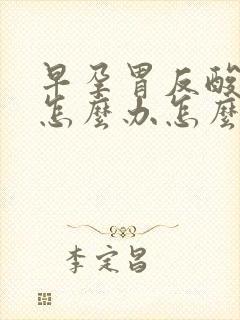 早孕胃反酸
怎麼办怎麼
李定昌